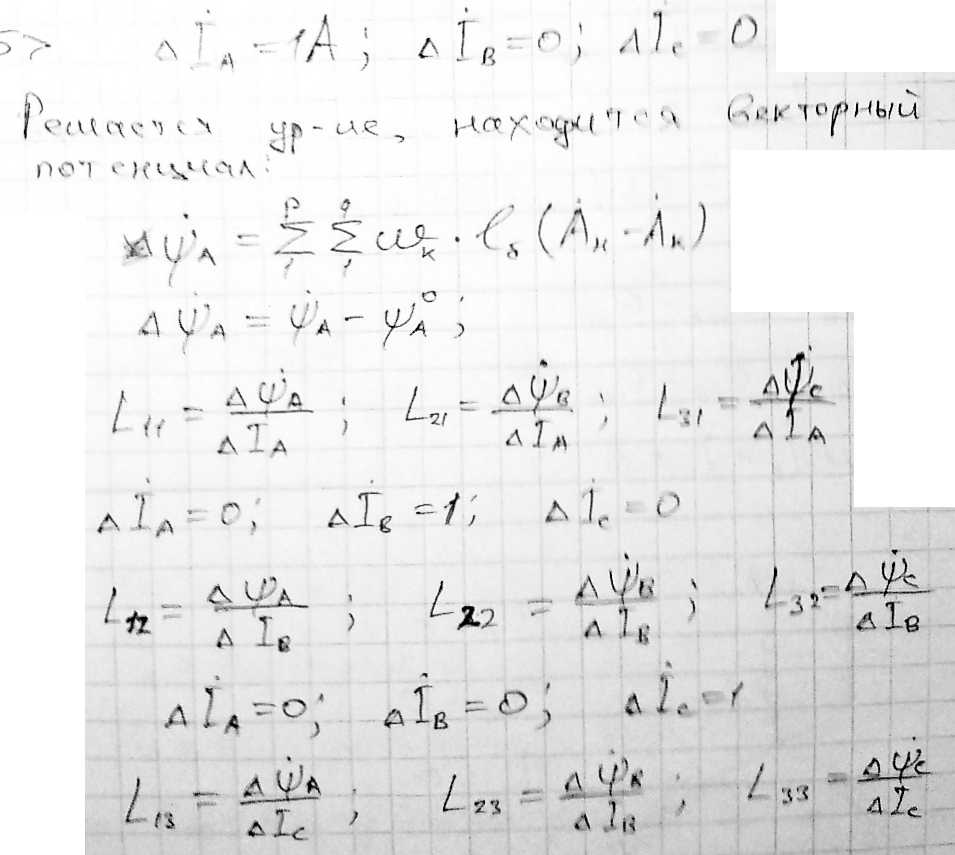 5> Δİ_A = 1A; Δİ_B = 0; Δİ_C = 0
Решается ур-ие, находится векторный
потенциал:
Δψ̇_A = Σ_1^p Σ_1^q ω_к · l_δ (Ȧ_н - Ȧ_к)
Δψ̇_A = ψ̇_A - ψ_A^0;
L_11 = Δψ̇_A / ΔI_A; L_21 = Δψ̇_B / ΔI_A; L_31 = Δψ̇_C / ΔI_A
Δİ_A = 0; Δİ_B = 1; Δİ_C = 0
L_12 = Δψ_A / ΔI_B; L_22 = Δψ̇_B / ΔI_B; L_32 = Δψ̇_C / ΔI_B
Δİ_A = 0; Δİ_B = 0; Δİ_C = 1
L_13 = Δψ̇_A / ΔI_C; L_23 = Δψ̇_B / ΔI_B; L_33 = Δψ̇_C / ΔI_C